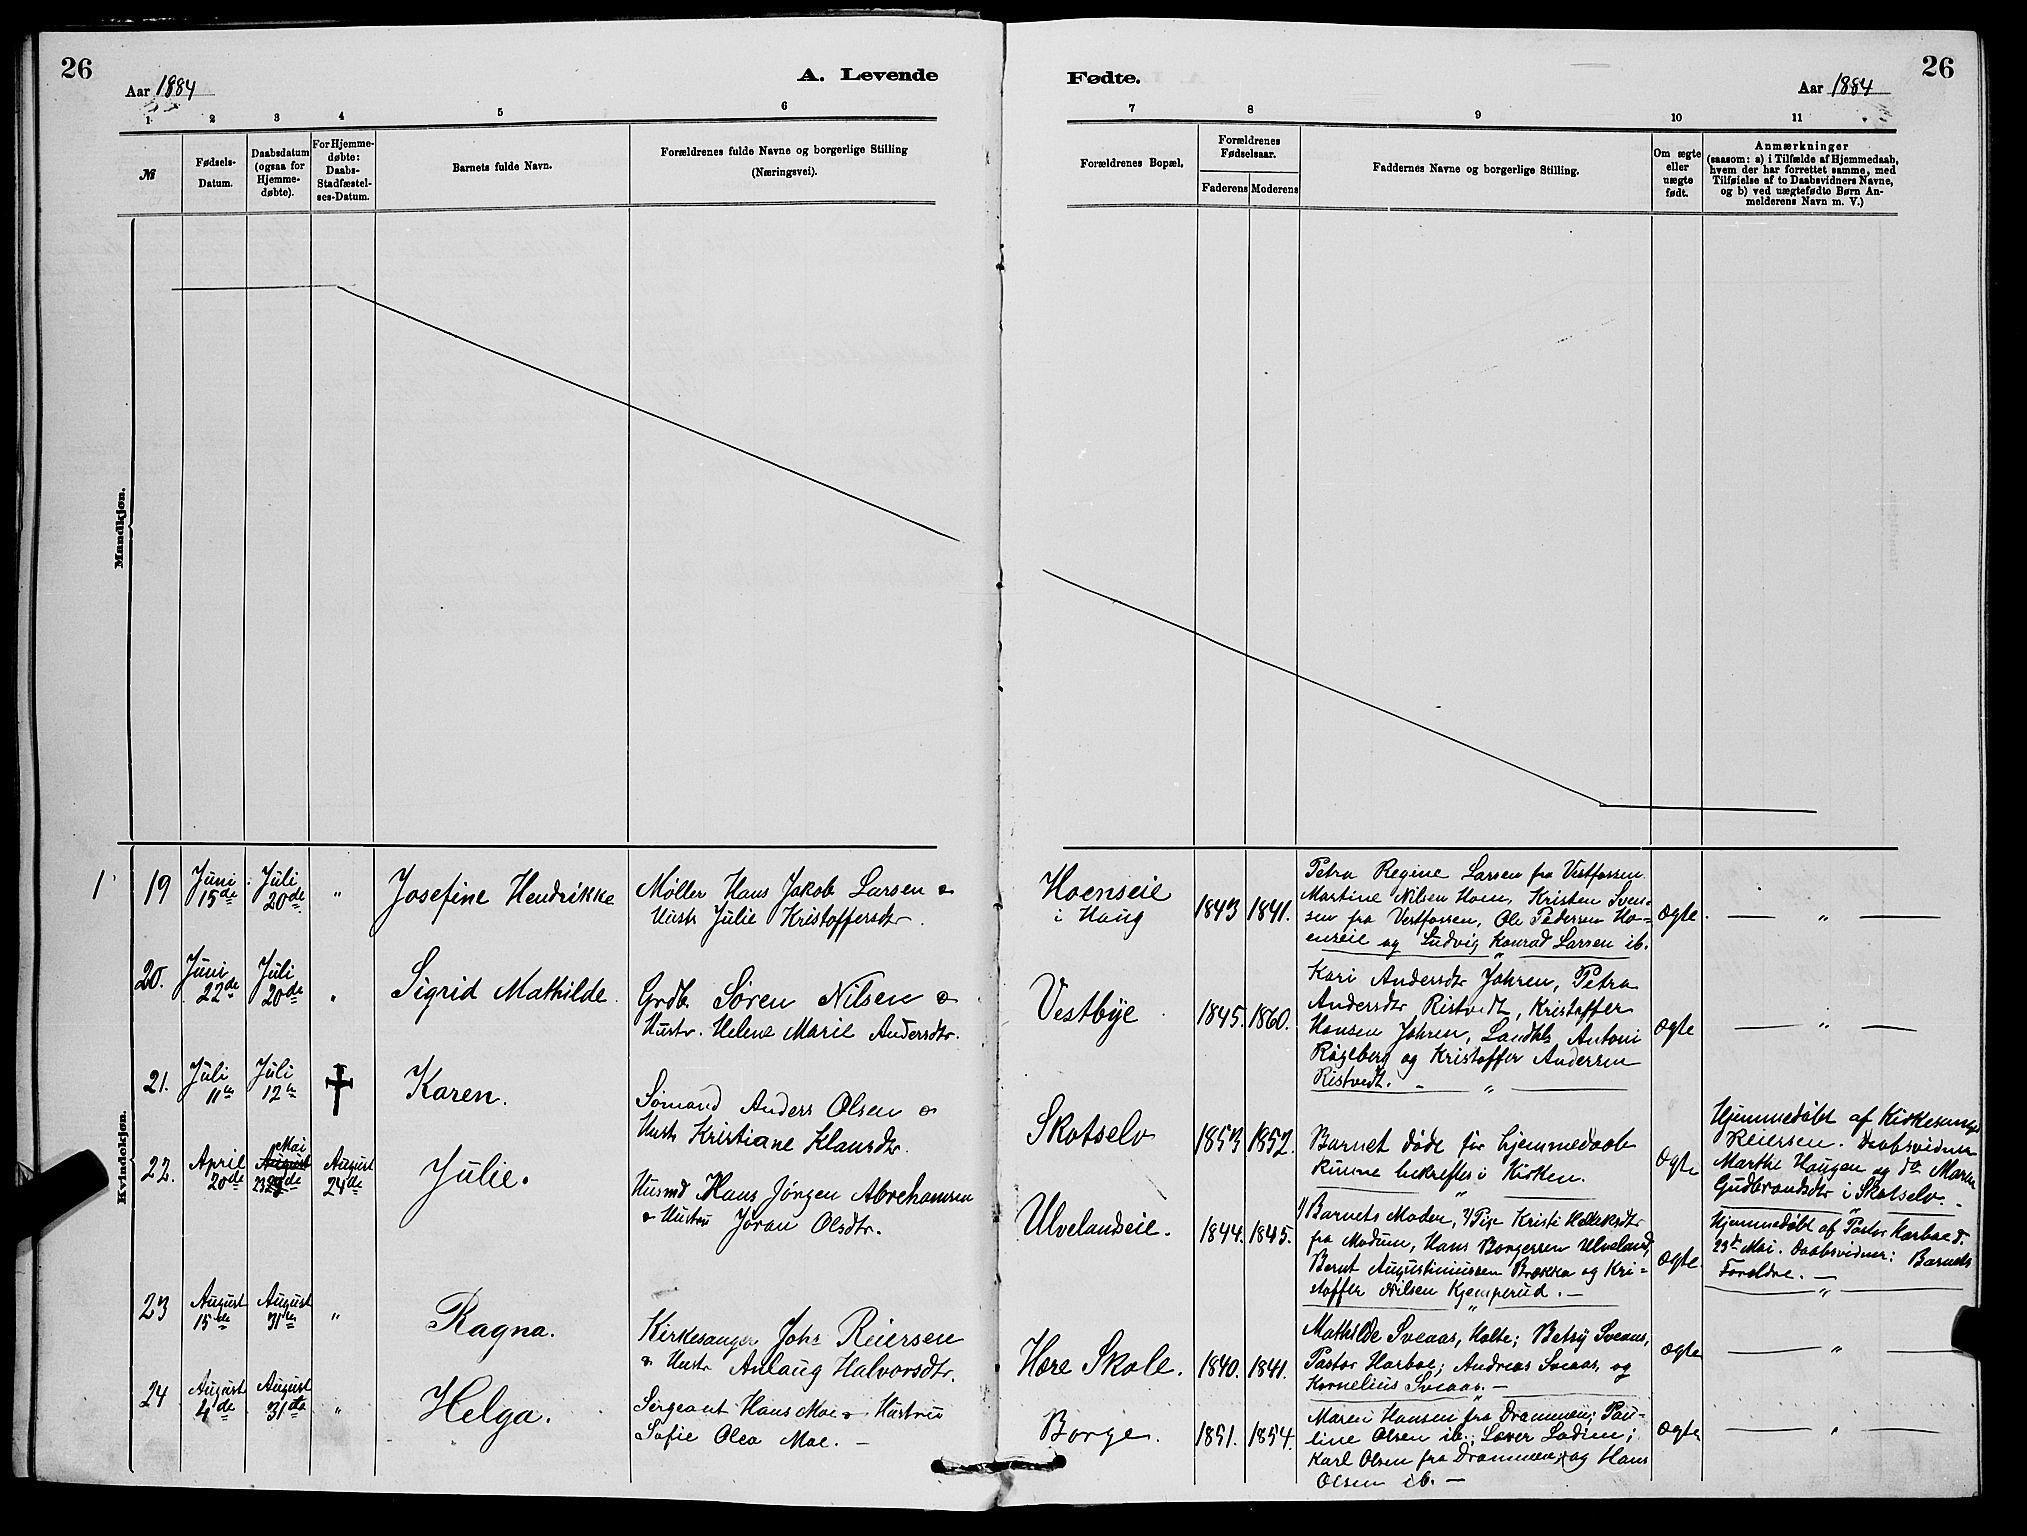 26
Aar 1884
A. Levende
1 2 3 4 5 6
№
Fødsels-
Datum.
Daabsdatum
(ogsaa for
Hjemme-
døbte).
For Hjemme-
døbte:
Daabs-
Stadfæstel-
ses-Datum.
Barnets fulde Navn.
Forældrenes fulde Navne og borgerlige Stilling
(Næringsvei).
Mandkjøn.
Kvindekjøn.
1 19 Juni 15de Juli 20de " Josefine Hendrikke Møller Hans Jakob Larsen &
Hustr Julie Kristoffersdtr.
20. Juni 22de Juli 20de " Sigrid Mathilde. Grdb Søren Nilsen &
Hustr. Helene Marie Andersdtr.
21. Juli 11te Juli 12te † Karen. Sømand Anders Olsen &
Hustr Kristiane Klausdtr.
22. April 20de Mai August 24de Julie. Husmd Hans Jørgen Abrehamsen
& Hustru Jøran Olsdtr.
23 August 15de August 31te " Ragna. Kirkesanger Johs Reiersen
& Hustr Anlaug Halvorsdtr.
24 August 4de August 31te " Helga. Sergeant Hans Moe & Hustru
Sofie Olea Moe. —
Fødte.
26
Aar 1884
7 8 9 10 11
Forældrenes Bopæl.
Forældrenes
Fødselsaar.
Faderens Moderens
Faddernes Navne og borgerlige Stilling.
Om ægte
eller
uægte
født.
Anmærkninger
(saasom: a) i Tilfælde af Hjemmedaab,
hvem der har forrettet samme, med
Tilføielse af to Daabsvidners Navne,
og b) ved uægtefødte Børn An-
melderens Navn m. V.)
Hoenseie
i Haug
1843 1841.
Petra Regine Larsen fra Vestfossen
Martine Nilsen Hoen, Kristen Sven-
sen fra Vestfossen, Ole Pedersen Ho-
enseie og Ludvig Konrad Larsen ib.
Ægte. — " —
Vestbye.
1845. 1860.
Kari Andersdtr Jahren, Petra
Andersdtr Ristvedt, Kristoffer
Hansen Jahren, Landhl Antoni
Røgeberg og Kristoffer Andersen
Ristvedt. — " —
Ægte — " —
Skotselv
1853 1852.
Barnet døde før hjemmedaab
kunne bekreftes i Kirken.
Ægte
Hjemmedøbt af Kirkesanger
Reiersen. Daabsvidner
Marthe Haugen og do Maren
Gudbrandsdtr i Skotselv. —
Ulvelandeie.
1844. 1845.
Barnets Moder, Pige Kristi
fra Modum, Hans Borgersen Ulveland,
Bernt Augustinussen Brekka og Kri-
stoffer Nilsen Kjemperud. —
Ægte.
Hjemmedøbt af Pastor Harboe d.
23de Mai. Daabsvidner: Barnets
Foreldre. —
Hære Skole.
1840. 1841.
Mathilde Sveaas, Holte; Betsy Sveaas,
Pastor Harboe; Andreas Sveaas, og
Kornelius Sveaas. —
Ægte — " —
Borge.
1851. 1854.
Maren Hansen fra Drammen; Pau-
line Olsen ib.;
Karl Olsen fra Drammen, og Hans
Olsen ib. —
Ægte — " —